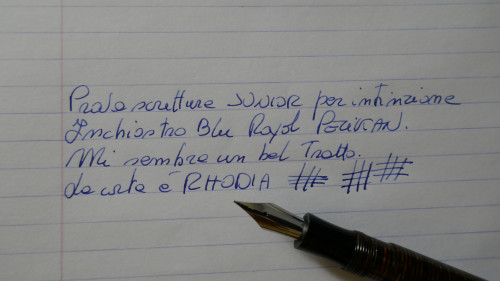 Prova scrittura JUNIOR per intinzione
Inchiostro Blu Royal PELIKAN.
Mi sembra un bel Tratto.
La carta è RHODIA